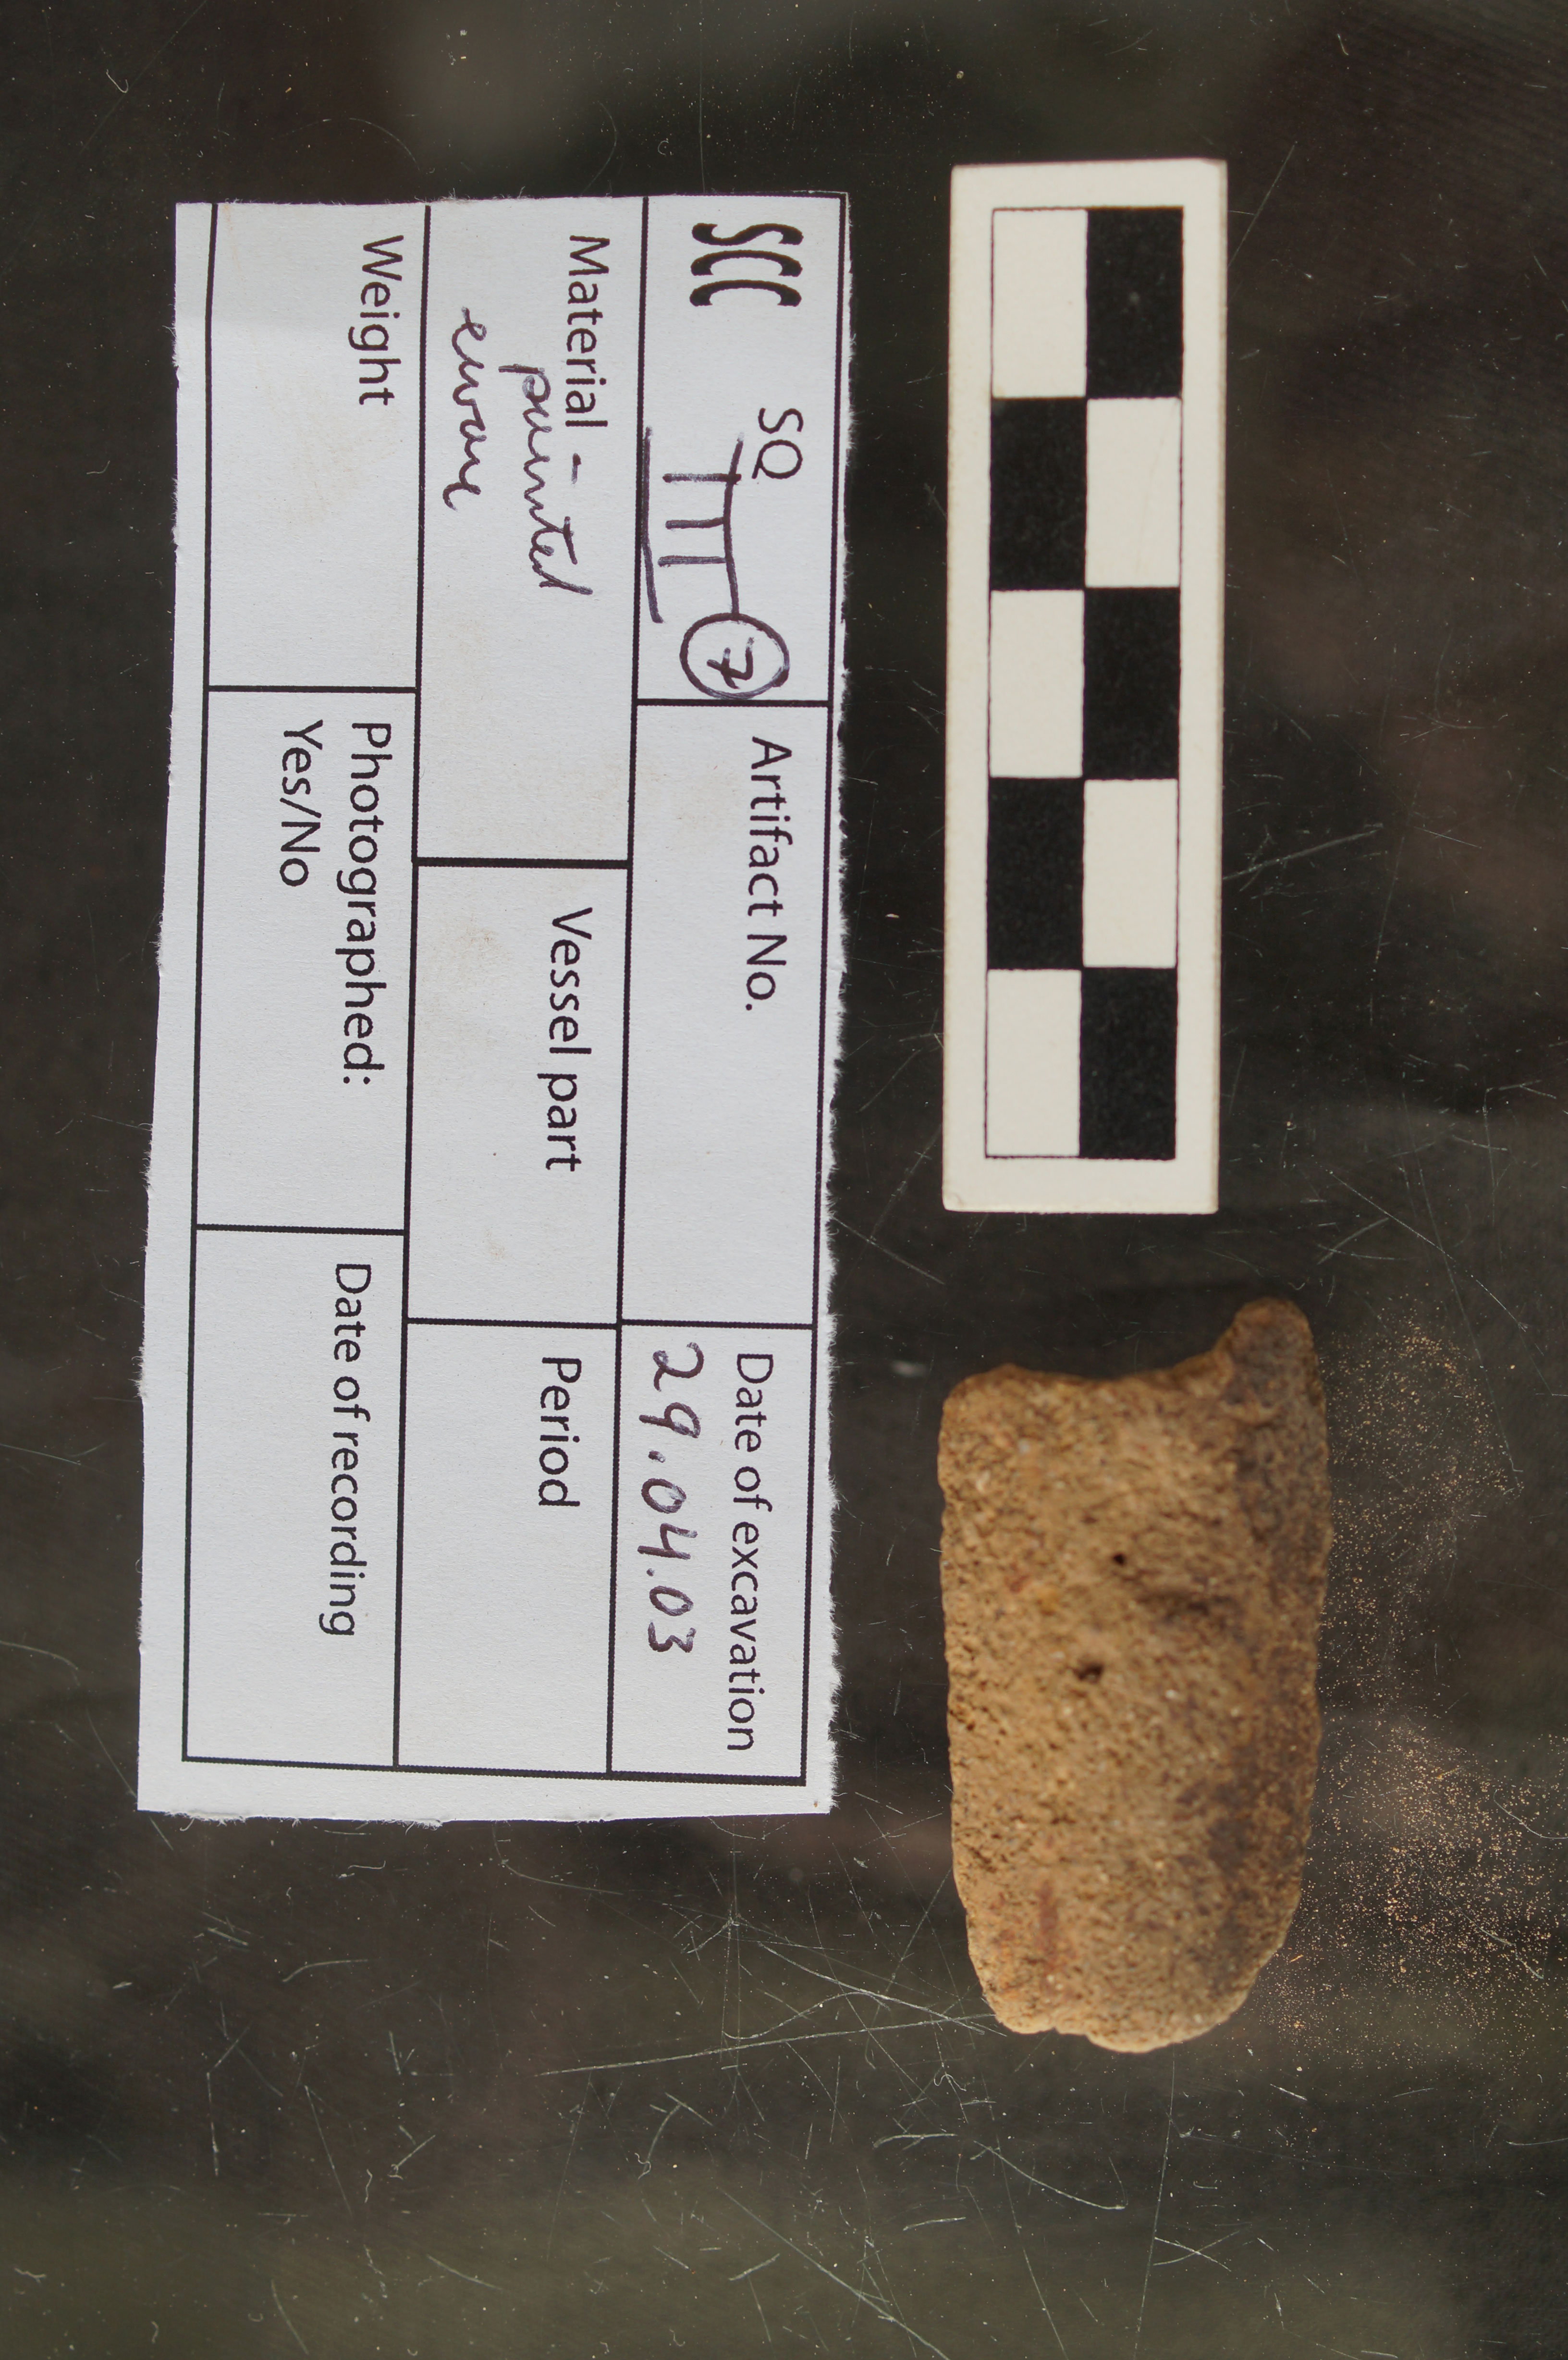 SCC SQ III 7
Artifact No.
Date of excavation
29.04.03
Material -
painted
eware
Vessel part
Period
Weight
Photographed:
Yes/No
Date of recording